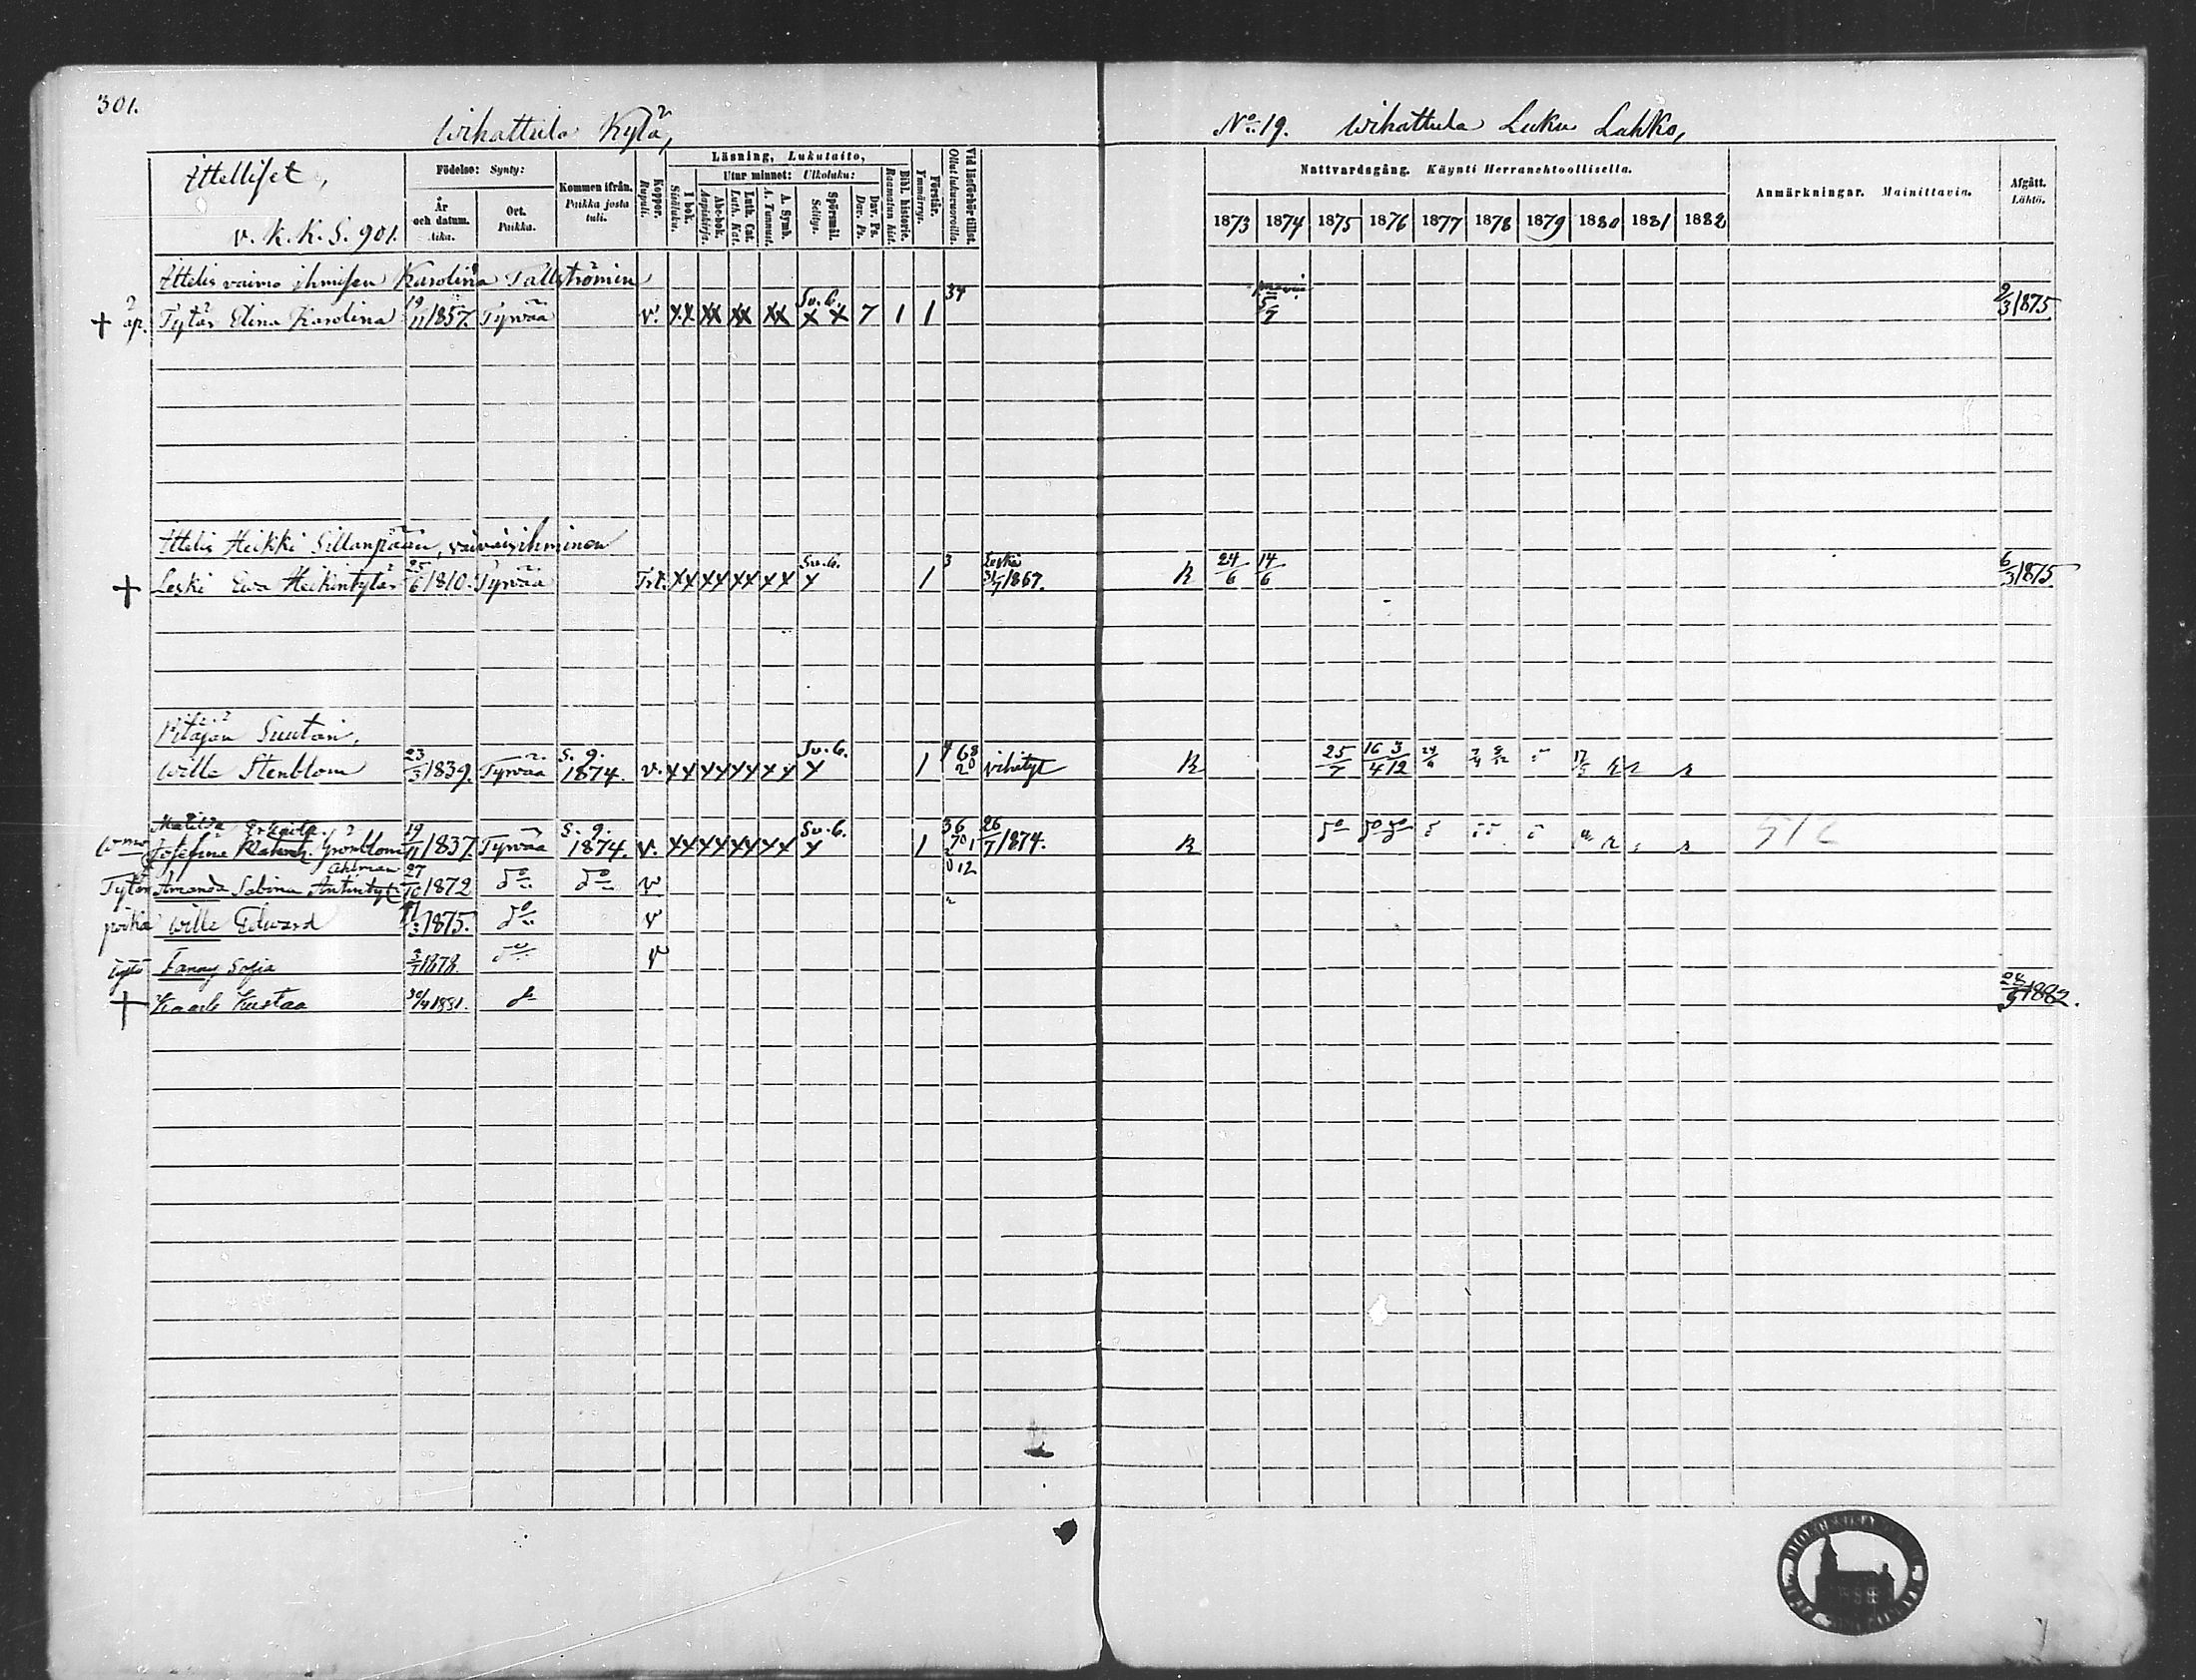 301.
Wihattula Kylä,
No 19. Wihattula Luku Lahko,
Ittelliset,
v. k. k. S. 901.
Födelse: Synty:
År och datum. Aika.
Ort. Paikka.
Kommen ifrån. Paikka josta tuli.
Koppor. Rupuli.
Läsning, Lukutaito,
I bok. Sisäluku.
Utur minnet: Ulkoluku:
Abc-bok. Aapiskirja.
Luth. Cat. Luth. Kat.
A. Symb. A. Tunnust.
Spörsmål. Selitys.
Dav. Ps. Dav. Ps.
Bibl. historie. Raamatun hist.
Förstår. Ymmärrys.
Vid läsförhör tillst. Ollut lukuvuorolla.
Nattvardsgång. Käynti Herranehtoollisella.
1873 1874 1875 1876 1877 1878 1879 1880 1881 1882
Anmärkningar. Mainittavia.
Afgått. Lähtö.
Ittelis vaimo ihmisen Karolina Tallströmin
äp. Tytär Elina Karolina 19/11 1857. Tyrvää v. xx xx xx xx Su. 6. x x 7 1 1 34 5/7 9/3 1875
Ittelis Heikki Sillanpään, vaivaisihminen
Leski Ewa Heikintytär 25/6 1810. Tyrvää Trt. xx xx xx xx Su. 6. x 1 3 Leski 31/7 1867. R 24/6 14/6 6/3 1875
Pitäjän Suutari,
Wille Stenblom 23/3 1839. Tyrvää S. 9. 1874. v. xx xx xx xx Su. 6. x 1 vihityt R 25/7 16/4 3/12
Matilda
Josefine Grönblom 19/11 1837. Tyrvää S. 9. 1874. v. xx xx xx xx Su. 6. x 1 26/7 1874. R
Ahlman
Tytär Amanda Sabina Antintyt 27/10 1872 do do v
poika Wille Edward 1875. do v
tytär Fanny Sofia 1878. do v
Kaarle Kustaa 30/4 1881. do 1882.